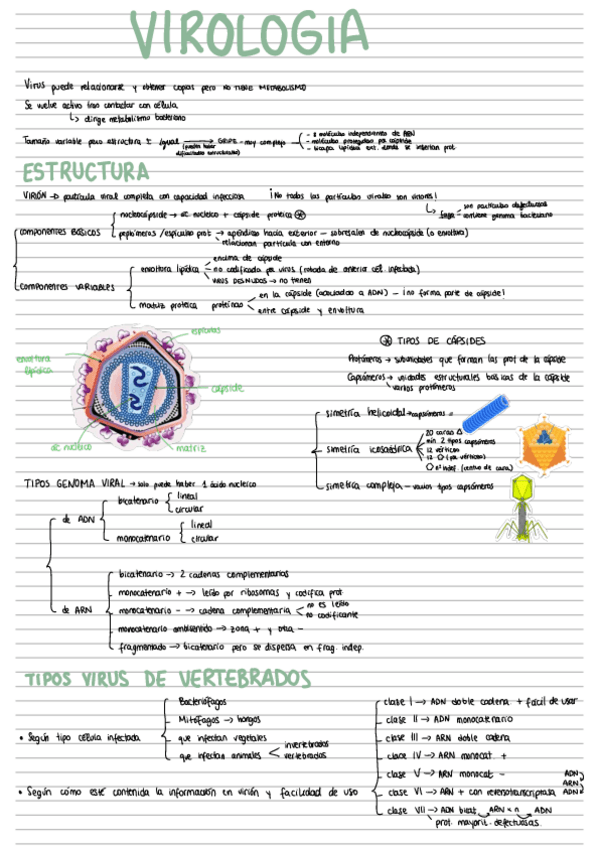 VIROLOGIA
Virus puede relacionarse y obtener copias pero NO TIENE METABOLISMO
Se vuelve activo tras contactar con célula
↳ dirige metabolismo bacteriano
Tamaño variable pero estructura ± igual → GRIPE - muy complejo
(puede haber dificultades estructurales)
- 8 moléculas independientes de ARN
- moléculas protegidas por cápside
- bicapa lipídica ext. donde se insertan prot.
ESTRUCTURA
VIRIÓN → partícula viral completa con capacidad infecciosa
¡No todas las partículas virales son viriones!
son partículas defectuosas
contiene genoma bacteriano
COMPONENTES BÁSICOS
nucleocápside → ác nucleico + cápside proteica *
peplómeros /espículas prot → apéndices hacia exterior - sobresalen de nucleocápside (o envoltura)
relacionan partícula con entorno
COMPONENTES VARIABLES
envoltura lipídica
encima de cápside
no codificada por virus (robada de anterior cél. infectada)
VIRUS DESNUDOS → no tienen
matriz proteica
proteínas
en la cápside (asociadas a ADN) - ¡no forma parte de cápside!
entre cápside y envoltura
espículas
envoltura lipídica
cápside
ác nucleico
matriz
* TIPOS DE CÁPSIDES
Protómeros → subunidades que forman las prot de la cápside
Capsómeros → unidades estructurales básicas de la cápside
↳ varios protómeros
simetría helicoidal → capsómeros =
simetría icosaédrica
20 caras △
mín. 2 tipos capsómeros
12 vértices
12 ⬠ (pa vértices)
⬡ nº indef. (centro de cara)
simetría compleja - varios tipos capsómeros
TIPOS GENOMA VIRAL → solo puede haber 1 ácido nucleico
de ADN
bicatenario
lineal
circular
monocatenario
lineal
circular
de ARN
bicatenario → 2 cadenas complementarias
monocatenario + → leído por ribosomas y codifica prot
monocatenario - → cadena complementaria
no es leído
no codificante
monocatenario ambisentido → zona + y otra -
fragmentado → bicatenario pero se dispersa en frag. indep.
TIPOS VIRUS DE VERTEBRADOS
• Según tipo célula infectada
Bacteriófagos
Mitófagos → hongos
que infectan vegetales
que infectan animales
invertebrados
vertebrados
• Según cómo esté contenida la información en virión y facilidad de uso
clase I → ADN doble cadena + fácil de usar
clase II → ADN monocatenario
clase III → ARN doble cadena
clase IV → ARN monocat. +
clase V → ARN monocat -
clase VI → ARN + con retrotranscriptasa
ADN
ARN
ADN
clase VII → ADN bicat ARN x n ADN
prot. mayorit. defectuosas.